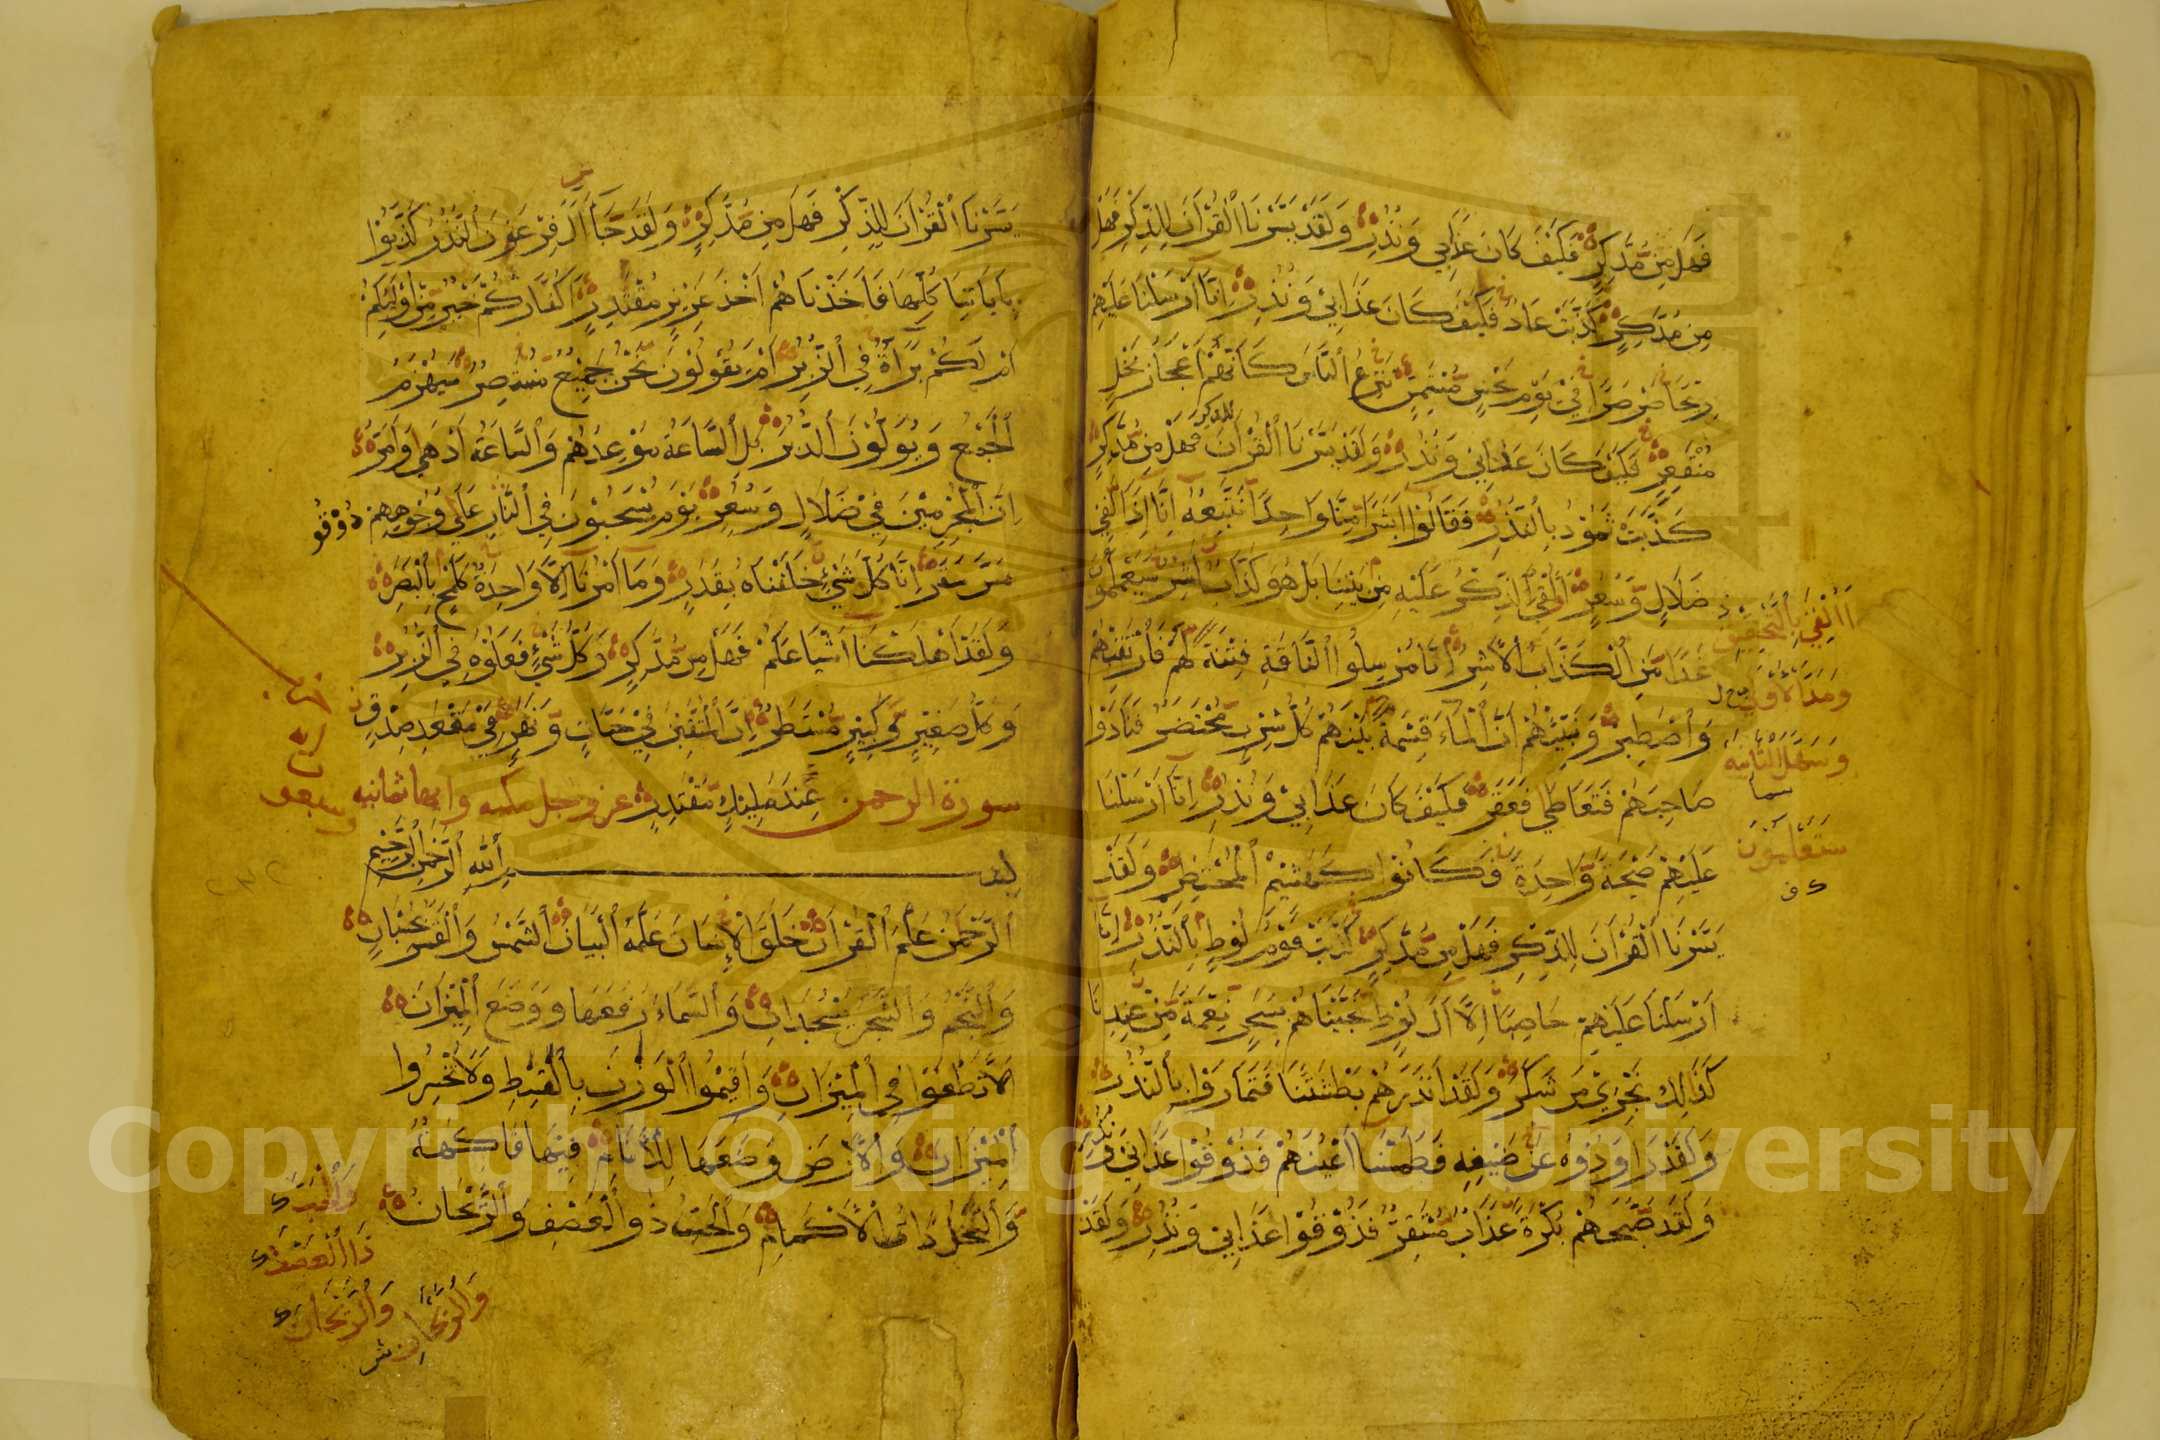 فَهَلْ مِن مُّدَّكِرٍ فَكَيْفَ كَانَ عَذَابِي وَنُذُرِ وَلَقَدْ يَسَّرْنَا الْقُرْآنَ لِلذِّكْرِ فَهَلْ
مِن مُّدَّكِرٍ كَذَّبَتْ عَادٌ فَكَيْفَ كَانَ عَذَابِي وَنُذُرِ إِنَّا أَرْسَلْنَا عَلَيْهِمْ
رِيحًا صَرْصَرًا فِي يَوْمِ نَحْسٍ مُّسْتَمِرٍّ تَنزِعُ النَّاسَ كَأَنَّهُمْ أَعْجَازُ نَخْلٍ
مُّنقَعِرٍ فَكَيْفَ كَانَ عَذَابِي وَنُذُرِ وَلَقَدْ يَسَّرْنَا الْقُرْآنَ للذكر فَهَلْ مِن مُّدَّكِرٍ
كَذَّبَتْ ثَمُودُ بِالنُّذُرِ فَقَالُوا أَبَشَرًا مِّنَّا وَاحِدًا نَّتَّبِعُهُ إِنَّا إِذًا لَّفِي
ضَلَالٍ وَسُعُرٍ أَأُلْقِيَ الذِّكْرُ عَلَيْهِ مِن بَيْنِنَا بَلْ هُوَ كَذَّابٌ أَشِرٌ سَيَعْلَمُونَ
غَدًا مَّنِ الْكَذَّابُ الْأَشِرُ إِنَّا مُرْسِلُوا النَّاقَةِ فِتْنَةً لَّهُمْ فَارْتَقِبْهُمْ
وَاصْطَبِرْ وَنَبِّئْهُمْ أَنَّ الْمَاءَ قِسْمَةٌ بَيْنَهُمْ كُلُّ شِرْبٍ مُّحْتَضَرٌ فَنَادَوْا
صَاحِبَهُمْ فَتَعَاطَى فَعَقَرَ فَكَيْفَ كَانَ عَذَابِي وَنُذُرِ إِنَّا أَرْسَلْنَا
عَلَيْهِمْ صَيْحَةً وَاحِدَةً فَكَانُوا كَهَشِيمِ الْمُحْتَظِرِ وَلَقَدْ
يَسَّرْنَا الْقُرْآنَ لِلذِّكْرِ فَهَلْ مِن مُّدَّكِرٍ كَذَّبَتْ قَوْمُ لُوطٍ بِالنُّذُرِ إِنَّا
أَرْسَلْنَا عَلَيْهِمْ حَاصِبًا إِلَّا آلَ لُوطٍ نَّجَّيْنَاهُم بِسَحَرٍ نِّعْمَةً مِّنْ عِندِنَا
كَذَلِكَ نَجْزِي مَن شَكَرَ وَلَقَدْ أَنذَرَهُم بَطْشَتَنَا فَتَمَارَوْا بِالنُّذُرِ
وَلَقَدْ رَاوَدُوهُ عَن ضَيْفِهِ فَطَمَسْنَا أَعْيُنَهُمْ فَذُوقُوا عَذَابِي وَنُذُرِ
وَلَقَدْ صَبَّحَهُم بُكْرَةً عَذَابٌ مُّسْتَقِرٌّ فَذُوقُوا عَذَابِي وَنُذُرِ وَلَقَدْ
وَسَهَّلَ الثَّانِيَة
سما
سَتَعْلَمُونَ
ك ف
يَسَّرْنَا الْقُرْآنَ لِلذِّكْرِ فَهَلْ مِن مُّدَّكِرٍ وَلَقَدْ جَاءَ آلَ فِرْعَوْنَ النُّذُرُ كَذَّبُوا
بِآيَاتِنَا كُلِّهَا فَأَخَذْنَاهُمْ أَخْذَ عَزِيزٍ مُّقْتَدِرٍ أَكُفَّارُكُمْ خَيْرٌ مِّنْ أُولَئِكُمْ
أَمْ لَكُم بَرَاءَةٌ فِي الزُّبُرِ أَمْ يَقُولُونَ نَحْنُ جَمِيعٌ مُّنتَصِرٌ سَيُهْزَمُ
الْجَمْعُ وَيُوَلُّونَ الدُّبُرَ بَلِ السَّاعَةُ مَوْعِدُهُمْ وَالسَّاعَةُ أَدْهَى وَأَمَرُّ
إِنَّ الْمُجْرِمِينَ فِي ضَلَالٍ وَسُعُرٍ يَوْمَ يُسْحَبُونَ فِي النَّارِ عَلَى وُجُوهِهِمْ ذُوقُوا
مَسَّ سَقَرَ إِنَّا كُلَّ شَيْءٍ خَلَقْنَاهُ بِقَدَرٍ وَمَا أَمْرُنَا إِلَّا وَاحِدَةٌ كَلَمْحٍ بِالْبَصَرِ
وَلَقَدْ أَهْلَكْنَا أَشْيَاعَكُمْ فَهَلْ مِن مُّدَّكِرٍ وَكُلُّ شَيْءٍ فَعَلُوهُ فِي الزُّبُرِ
وَكُلُّ صَغِيرٍ وَكَبِيرٍ مُّسْتَطَرٌ إِنَّ الْمُتَّقِينَ فِي جَنَّاتٍ وَنَهَرٍ فِي مَقْعَدِ صِدْقٍ
عِندَ مَلِيكٍ مُّقْتَدِرٍ
سورة الرحمن عز وجل مكيه وايها ثمانيه وسبعو
بسم اللَّهِ الرَّحْمَنِ الرَّحِيمِ
الرَّحْمَنُ عَلَّمَ الْقُرْآنَ خَلَقَ الْإِنسَانَ عَلَّمَهُ الْبَيَانَ الشَّمْسُ وَالْقَمَرُ بِحُسْبَانٍ
وَالنَّجْمُ وَالشَّجَرُ يَسْجُدَانِ وَالسَّمَاءَ رَفَعَهَا وَوَضَعَ الْمِيزَانَ
أَلَّا تَطْغَوْا فِي الْمِيزَانِ وَأَقِيمُوا الْوَزْنَ بِالْقِسْطِ وَلَا تُخْسِرُوا
الْمِيزَانَ وَالْأَرْضَ وَضَعَهَا لِلْأَنَامِ فِيهَا فَاكِهَةٌ
وَالنَّخْلُ ذَاتُ الْأَكْمَامِ وَالْحَبُّ ذُو الْعَصْفِ وَالرَّيْحَانُ
وَالْحَبَّ ك
ذَا الْعَصْفِ ك
وَالرَّيْحَانَ ك
وَالرَّيْحَانِ
Copyright © King Saud University